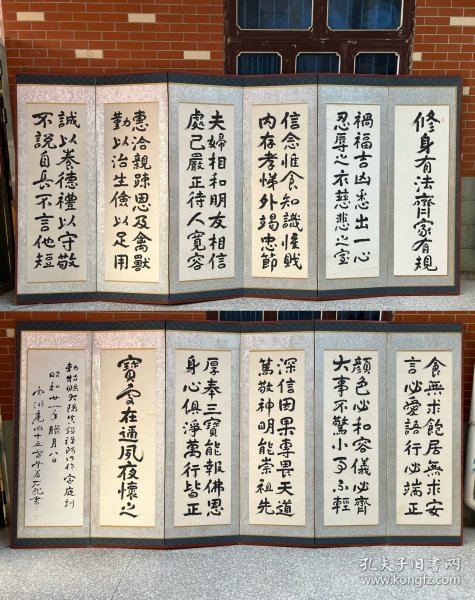 修身有法齊家有規
禍福吉凶悉出一心
忍辱之衣慈悲之室
信念惟食知識惟賎
内存孝悌外竭忠節
夫婦相和朋友相信
處己嚴正待人寛容
惠洽親踈恩及禽獸
勤以治生儉以足用
誠以養德禮以守敬
不說自長不言他短
食無求飽居無求安
言必愛語行必端正
顔色必和容儀必齊
大事不驚小事不輕
深信因果專畏天道
篤敬神明能崇祖先
厚奉三寶能報佛恩
身心俱淨萬行皆正
在通夙夜懷之
勅特賜大陽真禅師作家庭訓
昭和廿一年臘月八日
四十五世
孔夫子旧书网
www.kongfz.com